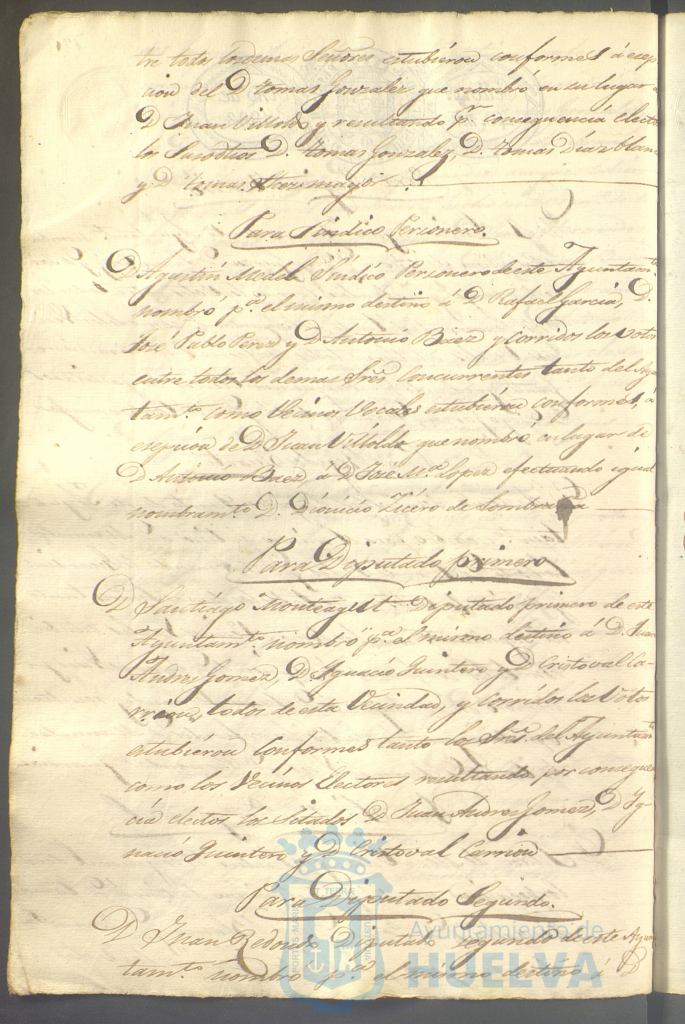 tre todos los demas Señores estubieron conformes á ecep
cion del D. tomas Gonzalez que nombró en su lugar a
D. Juan Villoldo y resultando pr. consequencia electo
los Susodhos D. tomas Gonzalez, D. tomas Díaz blan
y D. tomas
Para Sindico Personero.
D. Agustin Medel Sindico Personero de este Ayuntamto.
nombró pa. el mismo destino á D. Rafael Garcia, D.
José Pablo Perez y D. Antonio Baez y corridos los votos
entre todos los demas Sres. Concurrentes tanto del Ayun
tamto. como Vecinos Vocales estubieron conformes, á
esepcion de D. Juan Villoldo que nombró en lugar de
D. Antonio Baez á D. José Ma. Lopez efectuando igual
nombramto. D. Dionicio de Sombrera
Para Diputado primero
D. Santiago Diputado primero de este
Ayuntamto. nombró pa. el mismo destino á D. Juan
Andres Gomez, D. Ignacio Quintero y D. Cristoval Ca-
rrion, todos de esta Vecindad, y corridos los Votos
estubieron Conformes tanto los Sres. del Ayuntamto.
como los Vecinos Electores resultando por consequen
cia electos los Sitados D. Juan Andres Gomez, D. Ig-
nacio Quintero y D. Cristoval Carrion
Para Diputado Segundo.
D. Juan Redondo Diputado segundo de este Ayun
tamto. nombró pa. el mismo destino á D
Ayuntamiento de
HUELVA